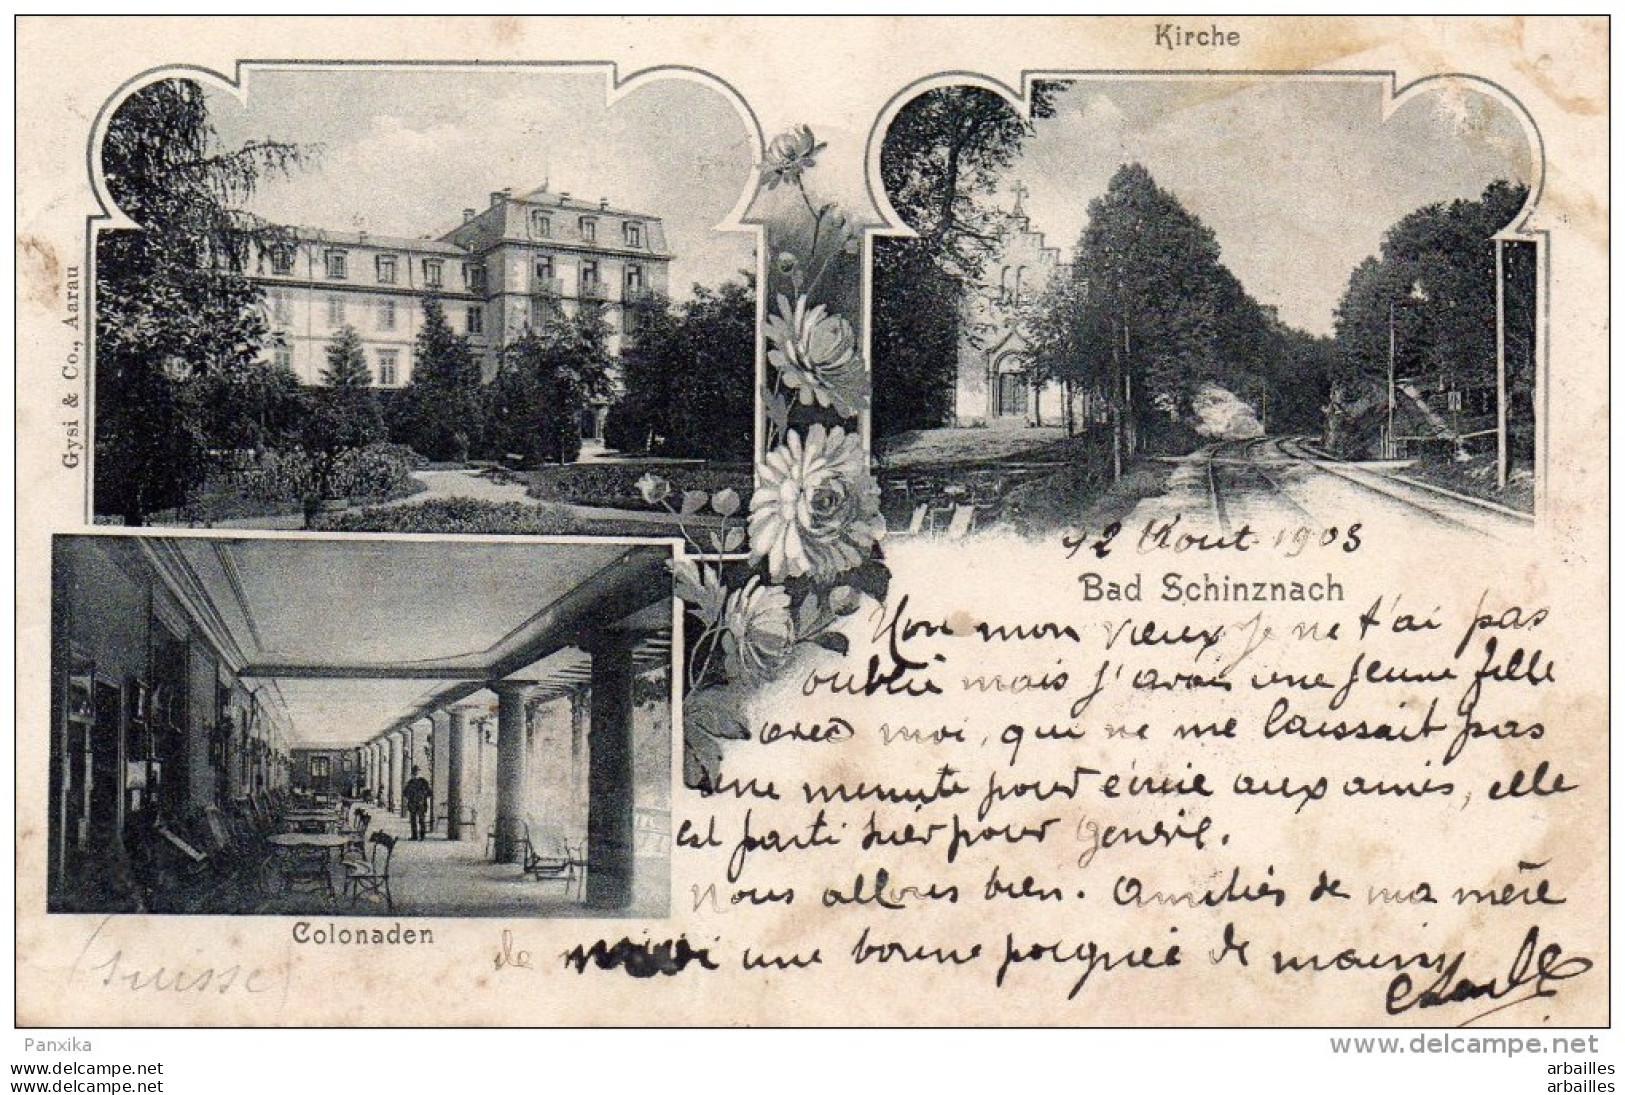 Kirche
Gysi & Co., Aarau
12 Aout 1903
Bad Schinznach
Non mon vieux je ne t'ai pas
oublié mais j'avais une jeune fille
avec moi, qui ne me laissait pas
une minute pour écrire aux amis, elle
est parti hier pour
Nous allons bien. Amitiés de ma mère
Colonaden
de moi une bonne poignée de mains
(Suisse)
Panxika
www.delcampe.net
arbailles
arbailles
arbailles
arbailles